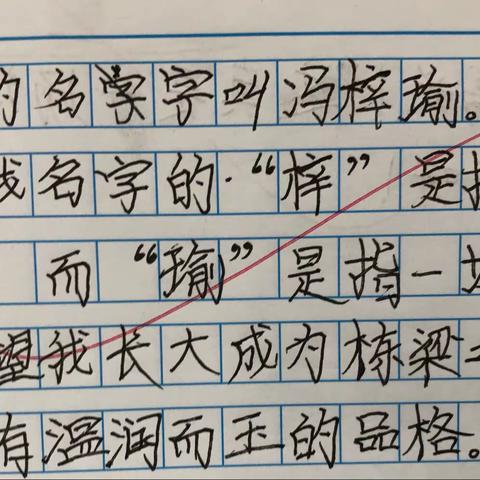 的名学字叫冯梓瑜。
我名字的·“梓”是指
而“瑜”是指一
望我长大成为栋梁
有温润而玉的品格。